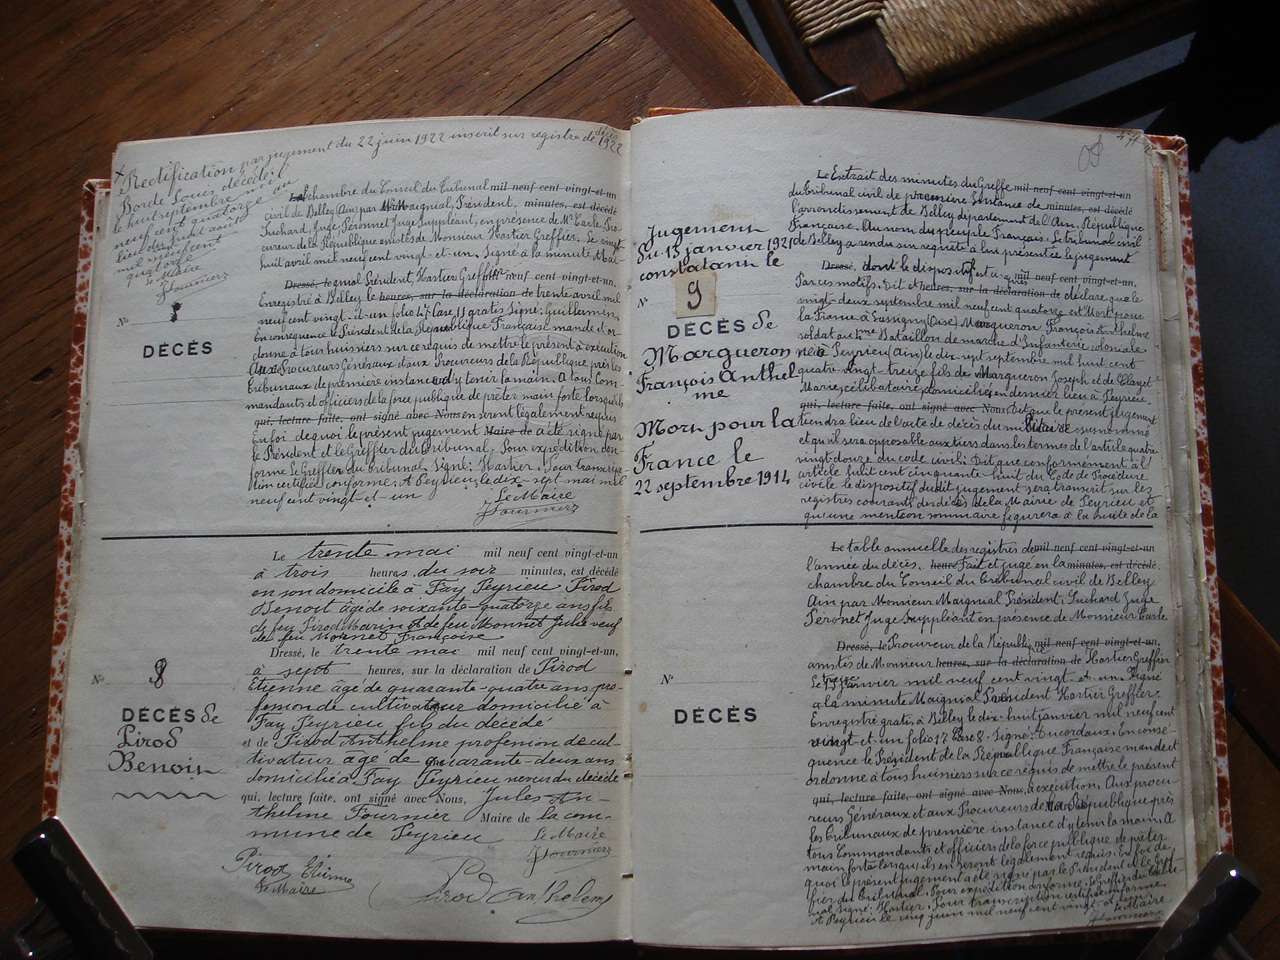 Rectification par jugement du 22 juin 1922 inscrit sur registre de décès 1922
Borde Louis décédé
le huit septembre mil
neuf cent quatorze au
lieu de huit août
mil neuf cent
quatorze
le Maire
JFournier
Le chambre du Conseil du Tribunal mil neuf cent vingt-et-un
civil de Belley (Ain) par Mr Maignial, Président, minutes, est décédé
Suchard, Juge, Peronnet Juge Suppléant, en présence de Mr Earle, Pro-
cureur de la République assistés de Monsieur Hartier Greffier. Le vingt-
huit avril mil neuf cent vingt-et-un. Signé à la minute, Mai-
Dressé, le gnial Président, Hartier Greffier mil neuf cent vingt-et-un,
Enregistré à Belley le heures, sur la déclaration de trente avril mil
neuf cent vingt-et-un folio 47 Case 11 gratis Signé: Guillermin
En conséquence le Président de la République Française mande et or-
donne à tous huissiers sur ce requis de mettre le présent à exécution
Aux Procureurs Généraux et aux Procureurs de la République, près les
Tribunaux de première instance d'y tenir la main. A tous Com-
mandants et officiers de la force publique de prêter main forte lorsqu'ils
qui, lecture faite, ont signé avec Nous en seront légalement requis
En foi de quoi le présent jugement Maire de a été signé par
le Président et le Greffier du tribunal. Pour expédition con-
forme Le Greffier du Tribunal Signé: Hartier. Pour transcrip-
tion certifiée conforme. A Peyrieu le dix-sept mai mil
neuf cent vingt-et-un
Le Maire
JFournier
No
DÉCÈS
Le trente mai mil neuf cent vingt-et-un
à trois heures du soir minutes, est décédé
en son domicile à Fay Peyrieu Pirod
Benoit âgé de soixante-quatorze ans fils
de feu Pirod Marin et de feu Monnet Julie veuf
de feu Monnet Françoise
Dressé, le trente mai mil neuf cent vingt-et-un,
à sept heures, sur la déclaration de Pirod
Etienne âgé de quarante-quatre ans pro-
fession de cultivateur domicilié à
Fay Peyrieu fils du décédé
et de Pirod Anthelme profession de cul-
tivateur âgé de quarante-deux ans
domicilié à Fay Peyrieu neveu du décédé
qui, lecture faite, ont signé avec Nous, Jules An-
thelme Fournier Maire de la com-
mune de Peyrieu
Le Maire
JFournier
Pirod Etienne
Le Maire
Pirod Anthelme
No 8
DÉCÈS de
Pirod
Benoit
Jugement
du 13 janvier 1921
constatant le
No 9
DÉCÈS de
Margueron
François Anthel
me
Mort pour la
France le
22 septembre 1914
Le Extrait des minutes du Greffe mil neuf cent vingt-et-un
du tribunal civil de première Instance de minutes, est décédé
l'arrondissement de Belley département de l'Ain. République
Française. Au nom du peuple Français. Le tribunal civil
de Belley a rendu sur requête à lui présentée le jugement
Dressé, dont le dispositif est à mil neuf cent vingt-et-un,
Par ces motifs. Dit et heures, sur la déclaration de déclare que le
vingt-deux septembre mil neuf cent quatorze est Mort pour
la France à Lassigny (Oise) Margueron François Anthelme
soldat au Bataillon de marche d'Infanterie coloniale
né à Peyrieu (Ain) le dix-sept septembre mil huit cent
quatre-vingt-treize fils de Margueron Joseph et de Clayet
Marie, célibataire domicilié en dernier lieu à Peyrieu
qui, lecture faite, ont signé avec Nous, Dit que le présent jugement
tiendra lieu de l'acte de décès du militaire susnommé
et qu'il sera opposable aux tiers dans les termes de l'article quatre
vingt-douze du code civil; Dit que conformément à l'
article huit cent cinquante-huit du Code de Procédure
civile le dispositif dudit jugement sera transcrit sur les
registres courants des décès de la Mairie de Peyrieu et
qu'une mention sommaire figurera à la suite de la
Le table annuelle des registres de mil neuf cent vingt-et-un
l'année du décès. heures Fait et jugé en la minutes, est décédé.
chambre du Conseil du Tribunal civil de Belley
Ain par Monsieur Maignial Président, Suchard Juge
Péronet Juge Suppléant en présence de Monsieur Earle
Dressé, le Procureur de la République mil neuf cent vingt-et-un,
assistés de Monsieur heures, sur la déclaration de Hartier Greffier
Le treize Janvier mil neuf cent vingt-et-un Signé
à la minute Maignial Président Hartier Greffier.
Enregistré gratis, à Belley le dix-huit janvier mil neuf cent
vingt-et-un folio 17 Case 8. Signé: Ducordaux. En consé-
quence le Président de la République Française mande et
ordonne à tous huissiers sur ce requis de mettre le présent
qui, lecture faite, ont signé avec Nous, à exécution, Aux procu-
reurs Généraux et aux Procureurs de la République près
les tribunaux de première instance d'y tenir la main. A
tous Commandants et officiers de la force publique de prêter
main forte lorsqu'ils en seront légalement requis. En foi de
quoi le présent jugement a été signé par le Président et le Gref-
fier du tribunal. Pour expédition conforme. Le Greffier du tribu-
nal signé: Hartier. Pour transcription certifiée conforme
A Peyrieu le cinq juin mil neuf cent vingt-et-un
Le Maire
JFournier
No
DÉCÈS